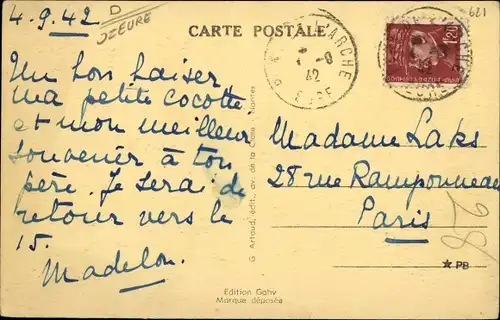 4.9.42
D
OZEURE
CARTE POSTALE
621
L'ARCHE
42
EURE
1F20
Un bon baiser
ma petite cocotte
et mon meilleur
souvenir à ton
père. Je serai de
retour vers le
15.
Madelon.
G. Artaud, édit., av. de la Close - Nantes
Madame Laks
28 rue Ramponneau
Paris
28
★ PB
Edition Gaby
Marque déposée